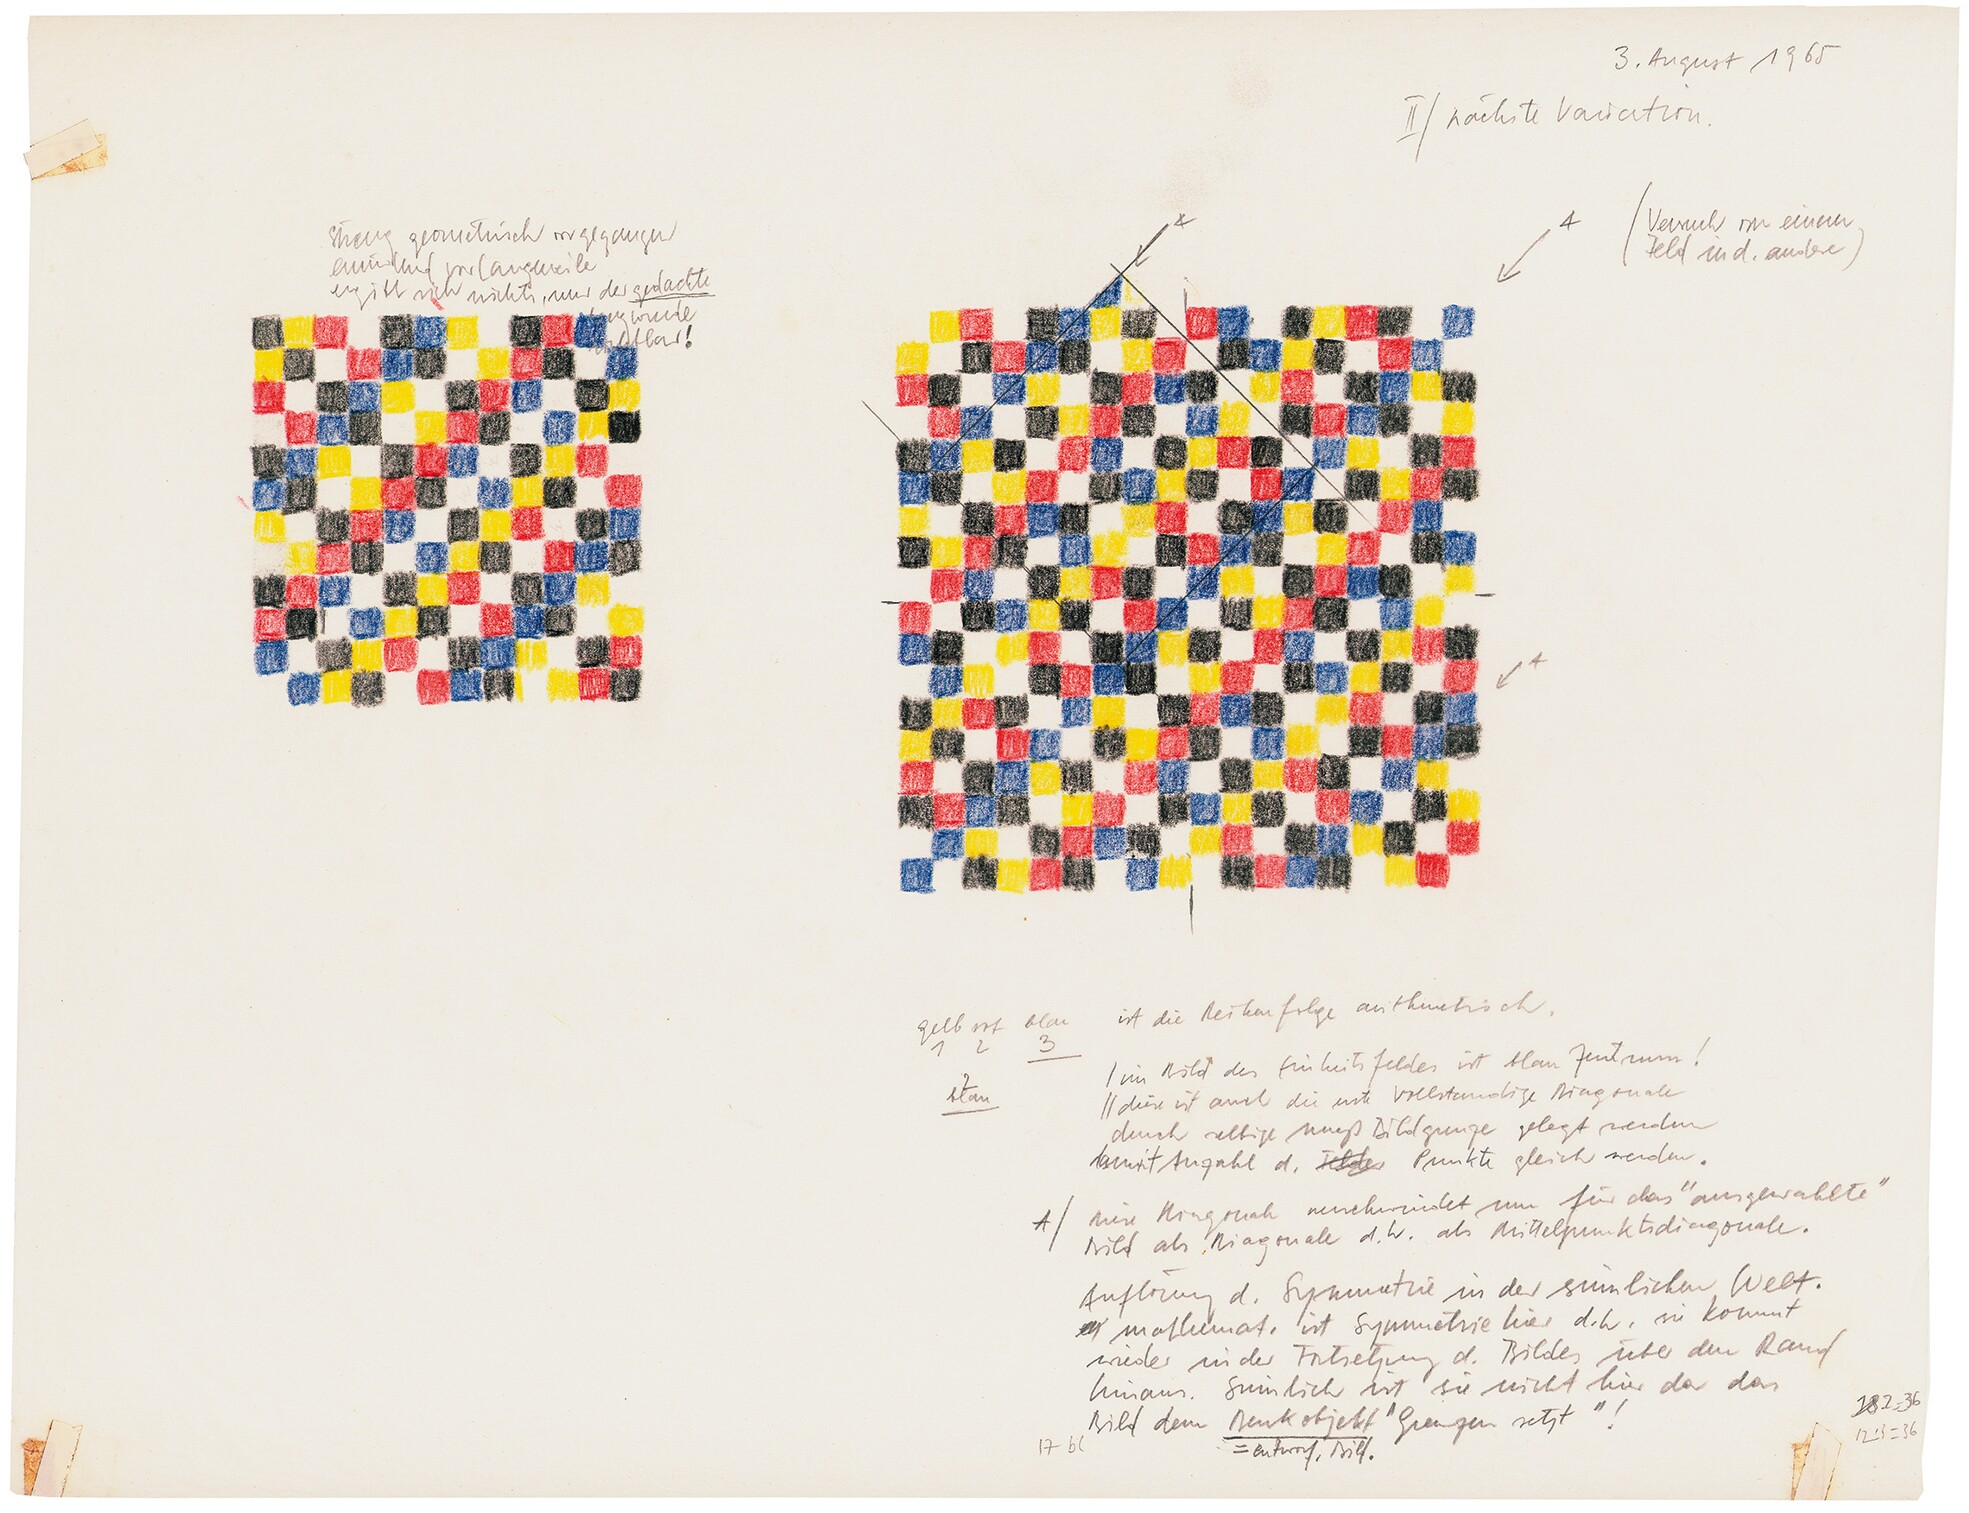 3. August 1965
II/ nächste Variation.
A
(Versuch von einem
Feld in d. andere)
streng geometrisch vorgegangen
ergibt sich nichts, nur der gedachte
A
gelb rot blau ist die Reihenfolge arithmetisch.
1 2 3
?
blau
/ im Bild des Einheitsfeldes ist blau Zentrum!
// diese ist auch die erste vollständige Diagonale
durch selbige muß Bildgrenze gelegt werden
damit Anzahl d. Punkte gleich werden.
A/ diese Diagonale verschwindet nun für das "ausgewählte"
Bild als Diagonale d.h. als Mittelpunktsdiagonale.
Auflösung d. Symmetrie in der sinnlichen Welt.
mathemat. ist Symmetrie hier d.h. sie kommt
wieder in der Fortsetzung d. Bildes über den Rand
hinaus. Sinnlich ist sie nicht hier da das
Bild dem Denkobjekt "Grenzen setzt"!
= entworf. Bild.